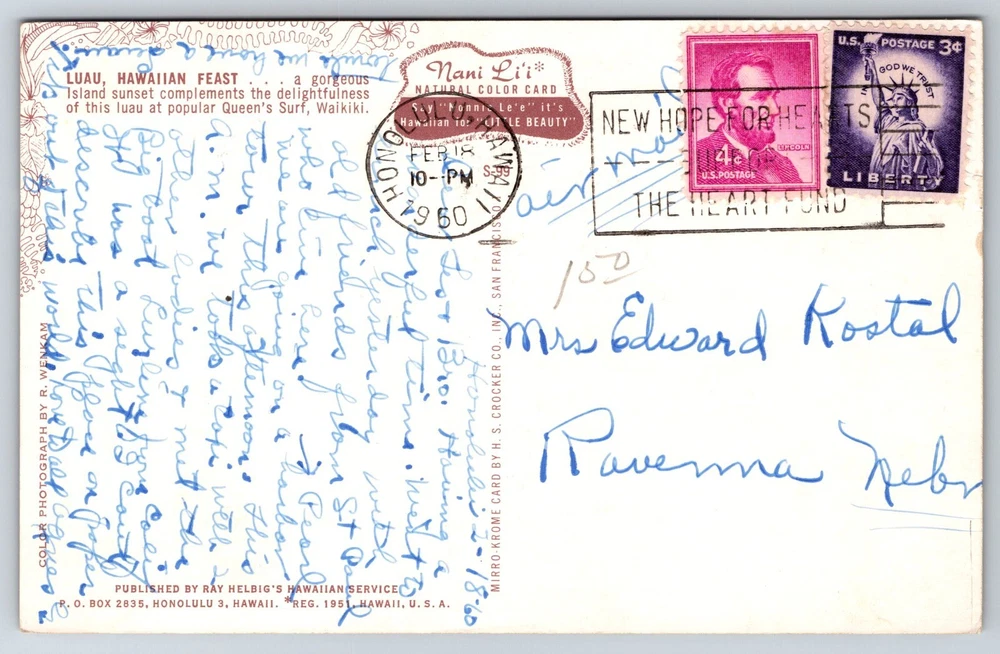 LUAU, HAWAIIAN FEAST . . . a gorgeous
Island sunset complements the delightfulness
of this luau at popular Queen's Surf, Waikiki.
Nani Li'i*
NATURAL COLOR CARD
Say "Nonnie Le'e" it's
Hawaiian for "LITTLE BEAUTY"
S-99
HONOLULU, HAWAII
FEB 18
10-PM
1960
NEW HOPE FOR HEARTS
THE HEART FUND
4¢
LINCOLN
U.S. POSTAGE
U.S. POSTAGE 3¢
IN GOD WE TRUST
LIBERTY
air mail
150
Mrs Edward Kostal
Ravenna Nebr
Honolulu 2-18-60
Sis + Bro: Having a
wonderful time. Went to
church yesterday with
old friends from St Paul
who live here. Pearl
we are going on a harbor
Tour this afternoon. This
a.m. we took a taxi with 2
other ladies & met the
Big boat Lurline from Calif
It was a sight. I Cant
describe this place on paper
its out of this world. Love Dad Agnes
Tonite we have a
Luau.
MIRRO-KROME CARD BY H. S. CROCKER CO., INC., SAN FRANCISCO
COLOR PHOTOGRAPH BY R. WENKAM
PUBLISHED BY RAY HELBIG'S HAWAIIAN SERVICE
P. O. BOX 2835, HONOLULU 3, HAWAII. *REG. 1951, HAWAII, U. S. A.